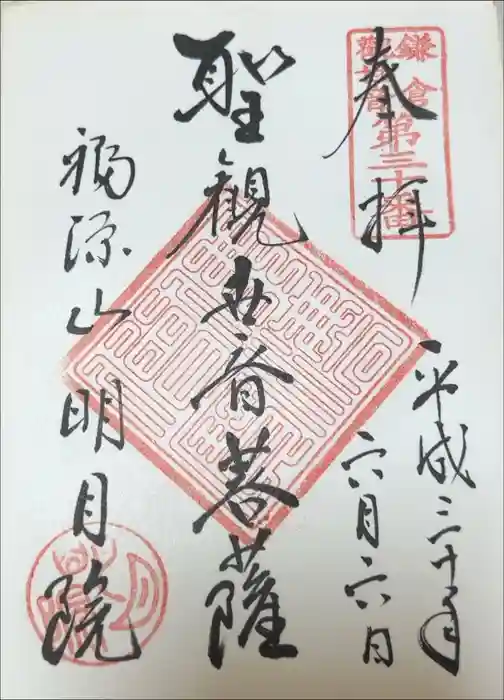 奉拝
鎌倉
観音
第三十番
平成三十年
六月六日
聖観世音菩薩
福源山明月院